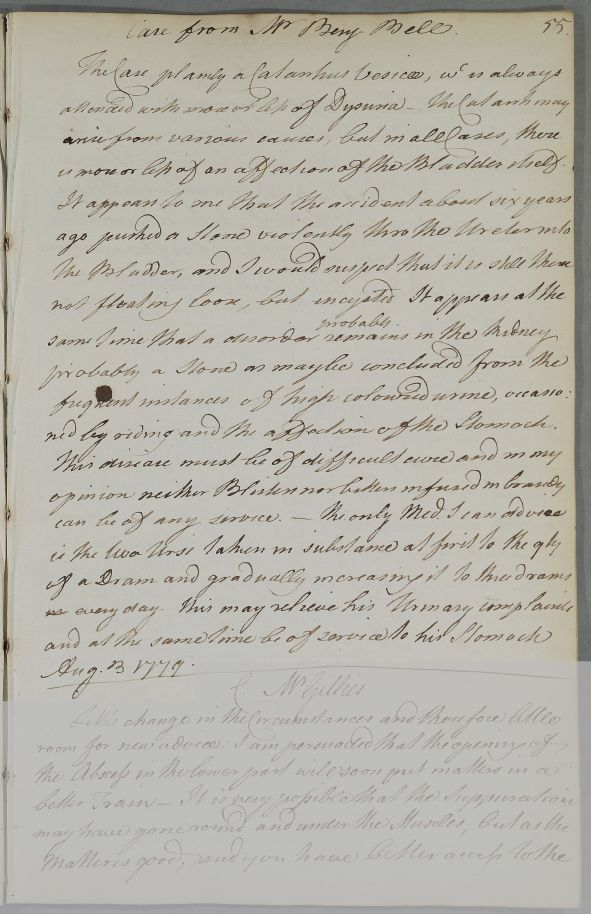 Case from Mr Benj. Bell.
55.
The Case plainly a Catarrhus Vesicæ, wc is always
attended with more or less of Dysuria - The Catarrh may
arise from various causes, but in all Cases, there
is more or less of an affection of the Bladder itself.
It appears to me that the accident about six years
ago pushed a Stone violently thro the Ureter into
the Bladder, and I would suspect that it is still there
not floating loose, but incysted It appears at the
same time that a disorder probably remains in the Kidney
probably a Stone as may be concluded from the
frequent instances of high coloured urine, occasio:
ned by riding and the affection of the Stomach.
This disease must be of difficult cure and in my
opinion neither Blisters nor bitters infused in brandy
can be of any service. - The only Med. I can advise
is the Uva Ursi taken in substance at first to the qty
of a Dram and gradually increasing it to three drams
every day. This may relieve his Urinary complaints
and at the same time be of service to his Stomach
Aug. 13 1779.
C Mr Gillies
Little change in the Circumstances and therefore little
room for new advice: I am persuaded that the opening of
the Abscess in the lower part will soon put matters in a
better Train - It is very possible that the Suppuration
may have gone round and under the Muscles, but as the
Matter is good, and you have better access to the